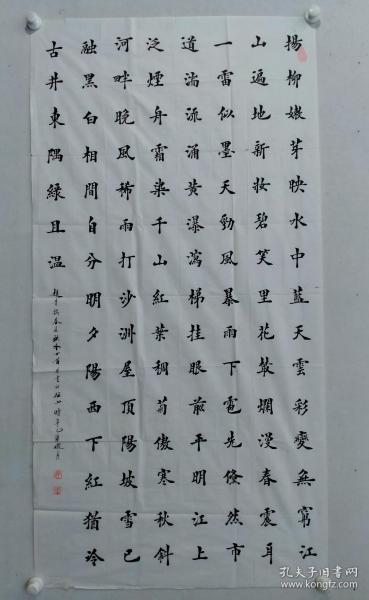 楊柳嫩芽映水中藍天雲彩變無窮江
山遍地新妝碧笑里花放爛漫春震耳
一雷似墨天勁風暴雨下雹先倏然市
道湍流涌黄瀑瀉梯挂眼前平明江上
泛煙舟霜染千山紅葉稠菊傲寒秋斜
河畔晚風稀雨打沙洲屋頂陽坡雪已
融黑白相間自分明夕陽西下紅猶冷
古井東隅綠且溫
孔夫子旧書网